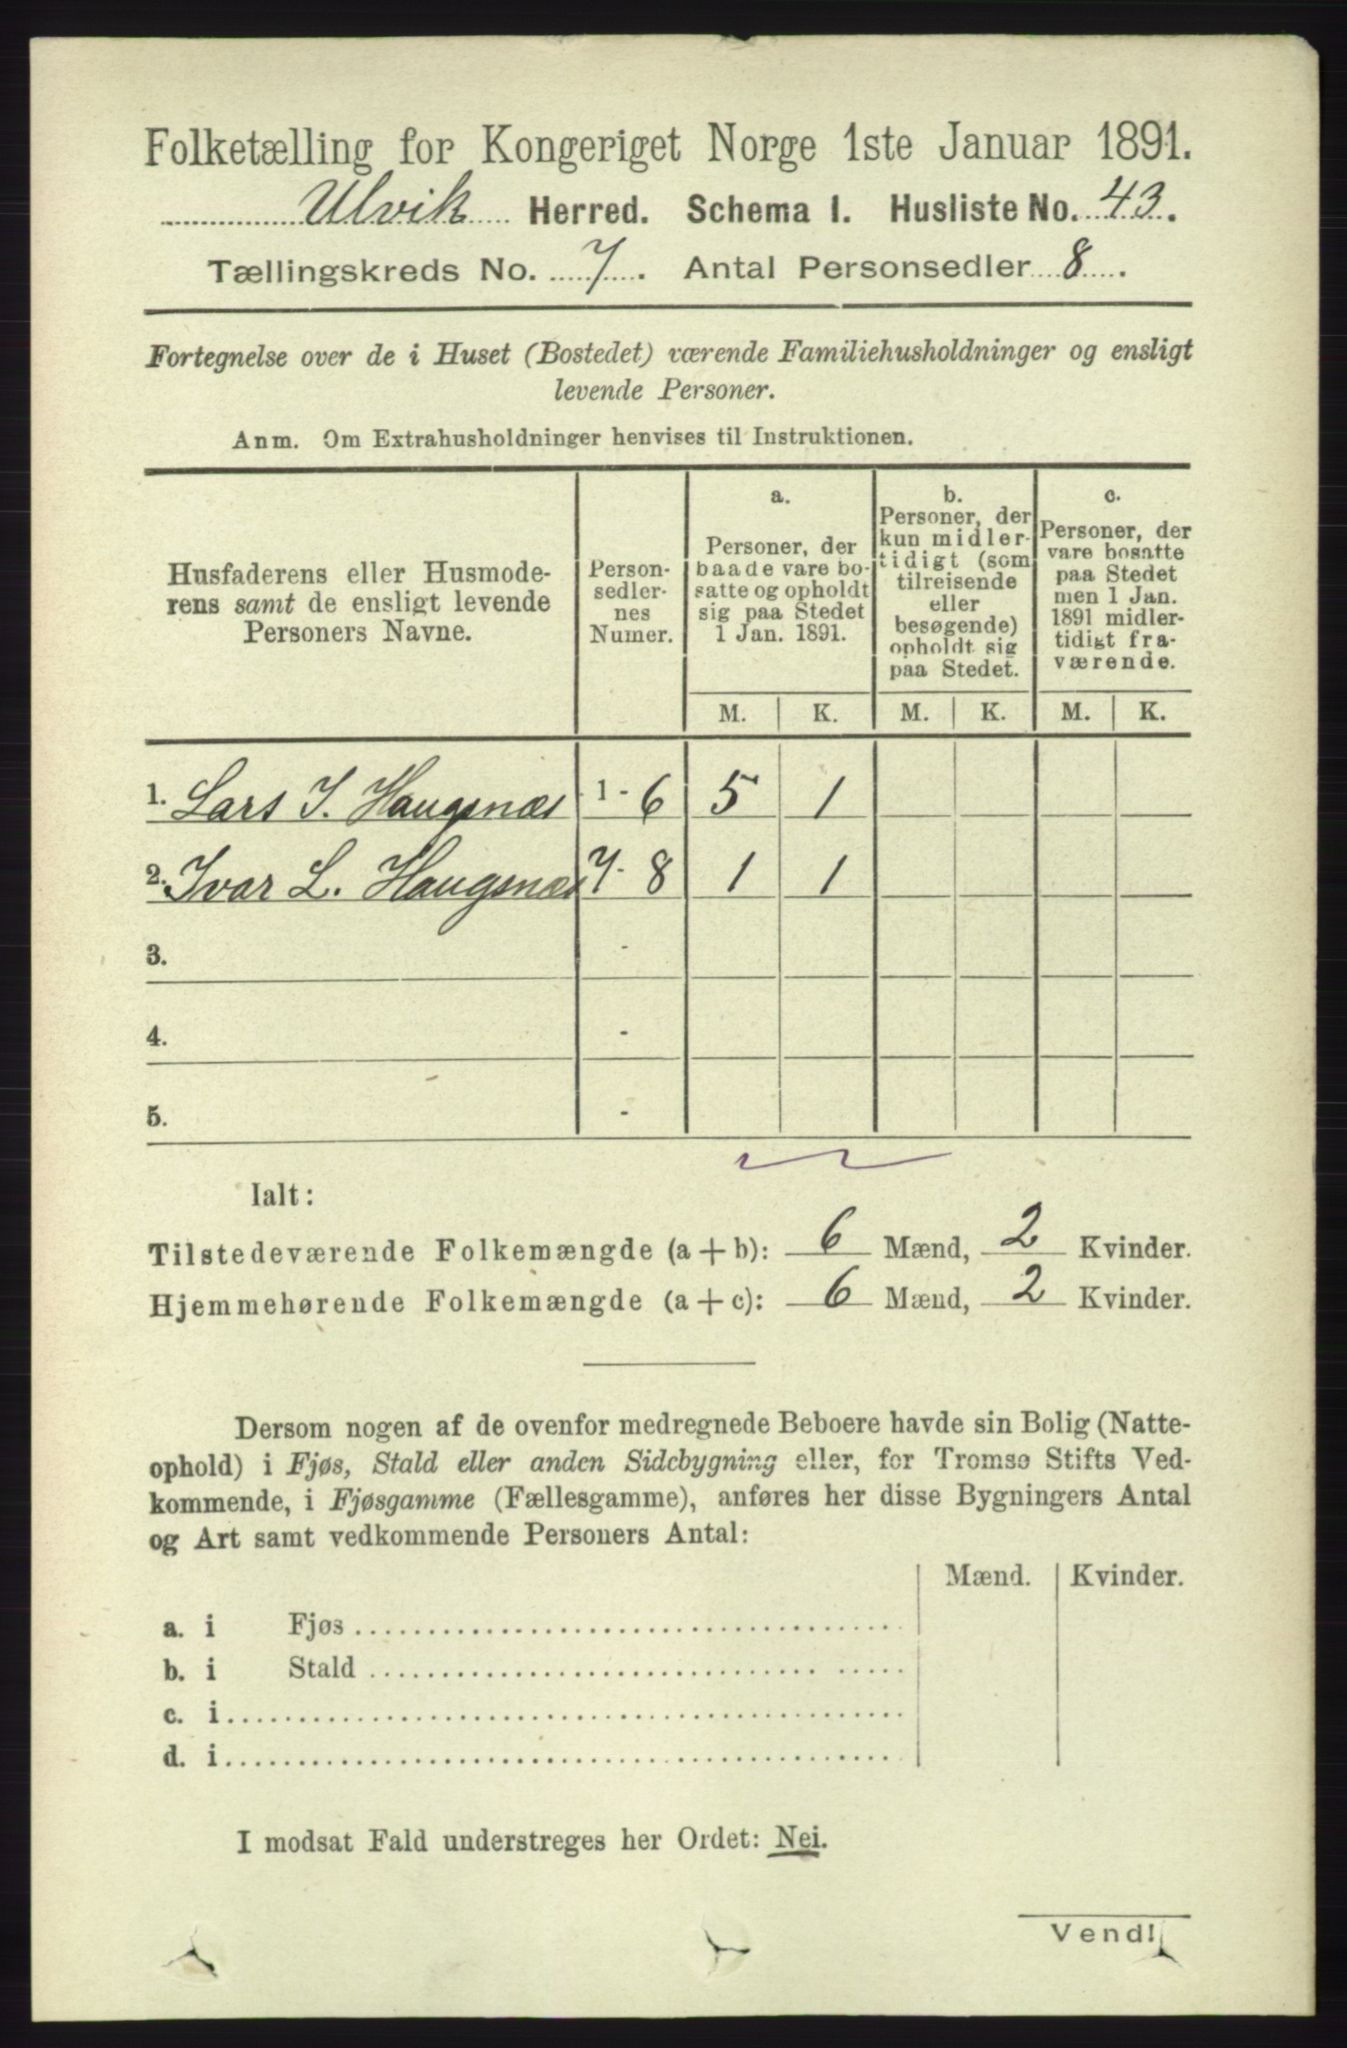 Folketælling for Kongeriget Norge 1ste Januar 1891.
Ulvik Herred. Schema I. Husliste No. 43.
Tællingskreds No. 7. Antal Personsedler 8.
Fortegnelse over de i Huset (Bostedet) værende Familiehusholdninger og ensligt
levende Personer.
Anm. Om Extrahusholdninger henvises til Instruktionen.
Husfaderens eller Husmode-
rens samt de ensligt levende
Personers Navne.
Person-
sedler-
nes
Numer.
a.
Personer, der
baade vare bo-
satte og opholdt
sig paa Stedet
1 Jan. 1891.
b.
Personer, der
kun midler-
tidigt (som
tilreisende
eller
besøgende)
opholdt sig
paa Stedet.
c.
Personer, der
vare bosatte
paa Stedet
men 1 Jan.
1891 midler-
tidigt fra-
værende.
M. K. M. K. M. K.
1. Lars I. Haugsnæs 1 - 6 5 1
2. Ivar L. Haugsnæs 7 - 8 1 1
3. -
4. -
5. -
Ialt:
Tilstedeværende Folkemængde (a + b): 6 Mænd, 2 Kvinder.
Hjemmehørende Folkemængde (a + c): 6 Mænd, 2 Kvinder.
Dersom nogen af de ovenfor medregnede Beboere havde sin Bolig (Natte-
ophold) i Fjøs, Stald eller anden Sidebygning eller, for Tromsø Stifts Ved-
kommende, i Fjøsgamme (Fællesgamme), anføres her disse Bygningers Antal
og Art samt vedkommende Personers Antal:
Mænd. Kvinder.
a. i Fjøs
b. i Stald
c. i
d. i
I modsat Fald understreges her Ordet: Nei.
Vend!